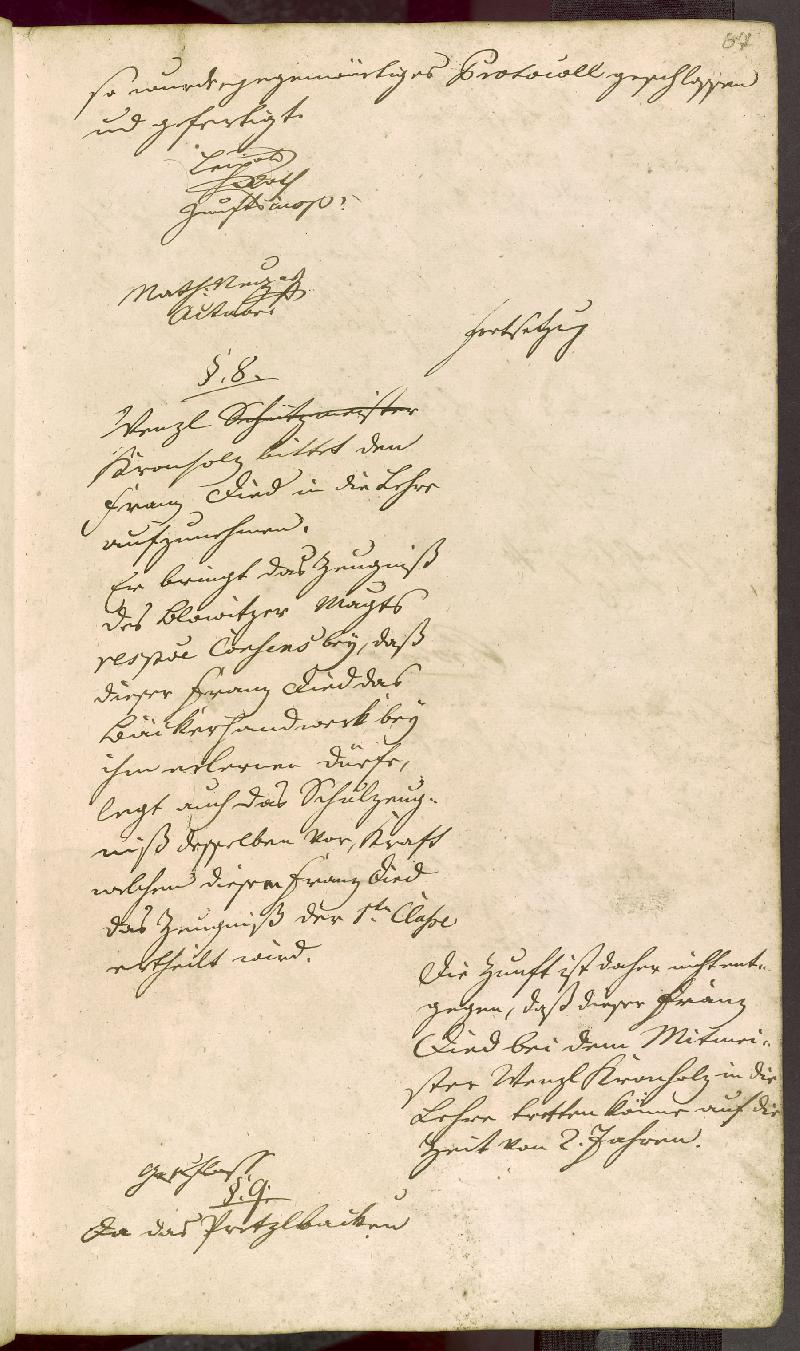 87
so wurde gegenwärtiges Protocoll geschlossen
und gefertigt.
Leopold
Zunftsmos:
Math:
Actuar
Fortsetzug
§. 8.
Wenzl Schützmeister
Kronholz bittet den
Franz Died in die Lehre
aufzunehmen.
Er bringt das Zeugniß
des Blowitzer Magts
respve Consens bey, daß
dieser Franz Died das
Bäckerhandwerk bey
ihm erlernen dürfe,
legt auch das Schulzeug-
niß desselben vor, Kraft
welchem diesem Franz Died
das Zeugniß der 1ten Classe
ertheilt wird.
Die Zunft ist daher nicht ent-
gegen, daß dieser Franz
Died bei dem Mitmei-
ster Wenzl Kronholz in die
Lehre tretten könne auf die
Zeit von 2. Jahren.
§. 9.
Da das Pretzlbacken